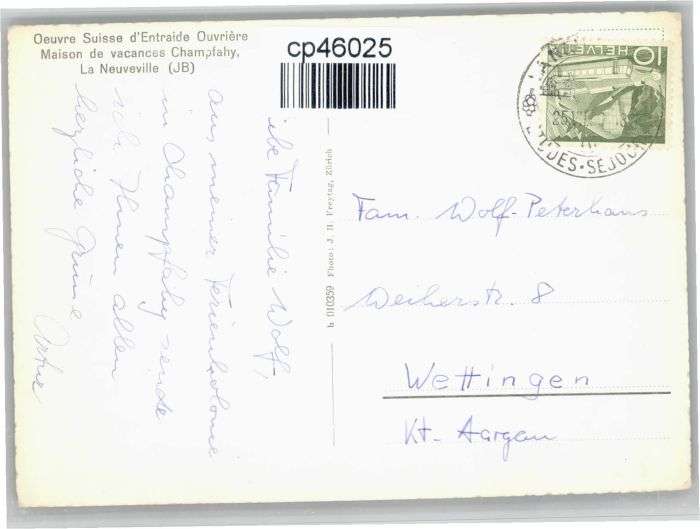 Oeuvre Suisse d'Entraide Ouvrière
Maison de vacances Champfahy,
La Neuveville (JB)
cp46025
HELVETIA
10
ETUDES-SEJOUR
ibe Familie Wolf,
aus meiner Ferienkolonie
in Champfahy sende
ich Ihnen allen
herzliche Grüsse
h 010359 Photo: J. H. Freytag, Zürich
Fam. Wolf-Peterhans
Weiherstr. 8
Wettingen
Kt. Aargau